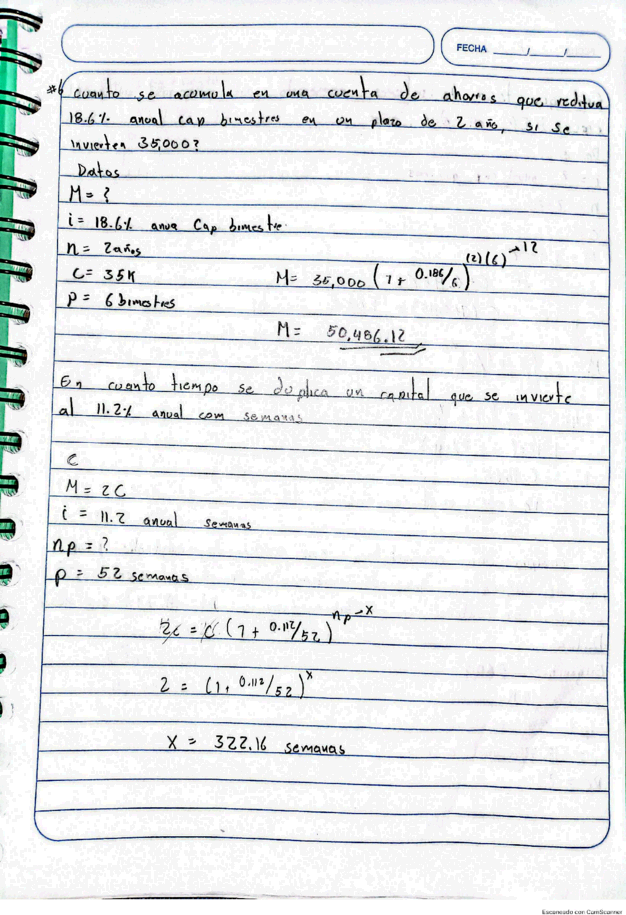 FECHA / /
#6 cuanto se acumula en una cuenta de ahorros que reditua
18.6% anual cap bimestres en un plazo de 2 año, si se
invierten 35,000?
Datos
M= ?
i= 18.6% anua Cap bimestre
n= 2años
C= 35K
M= 35,000 (1+ 0.186/6)^(2)(6)→12
P= 6 bimestres
M= 50,486.12
En cuanto tiempo se duplica un capital que se invierte
al 11.2% anual com semanas
C
M= 2C
i = 11.2 anual semanas
np = ?
p = 52 semanas
2C = C (1+ 0.112/52)^np→x
2 = (1+ 0.112/52)^x
X = 322.16 semanas
Escaneado con CamScanner